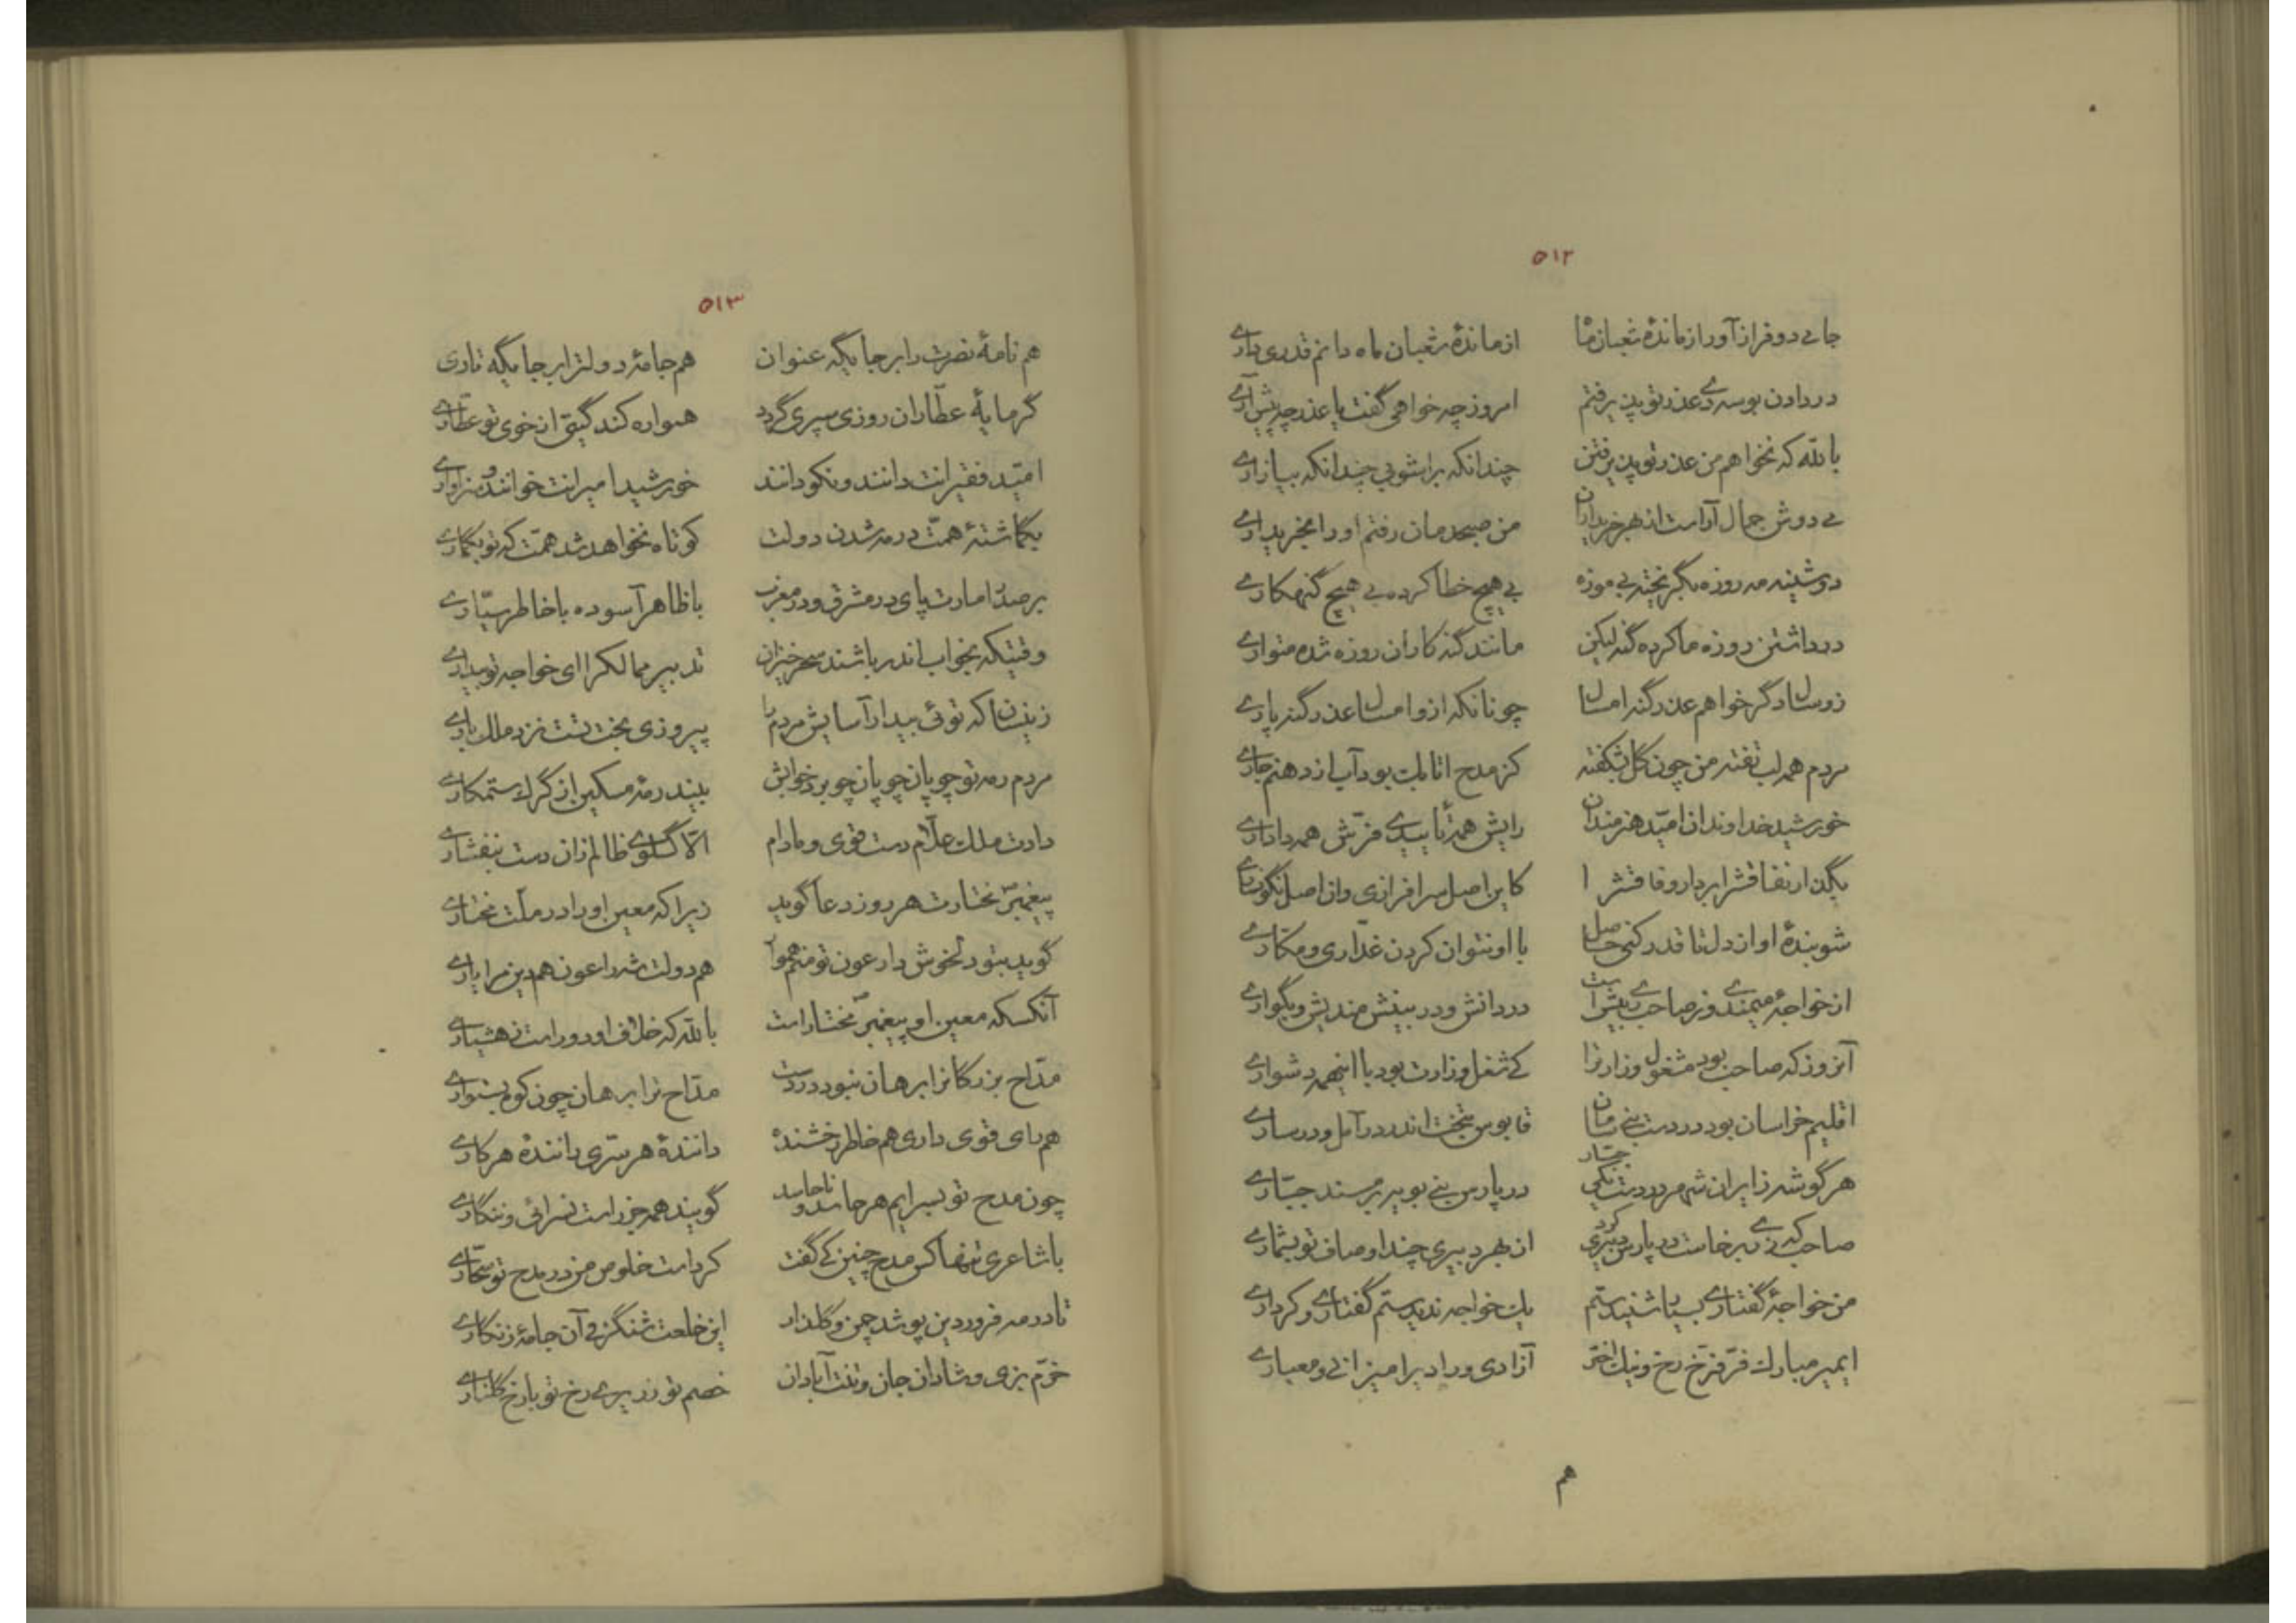 ۵۱۲
جامی دو فراز آور از ماندهٔ شعبان ما از ماندهٔ شعبان ماه دانم قدری داری
در دادن بوسه دی عذر تو پذیرفتم امروز چه خواهی گفت یا عذر چه پیش آری
بالله که نخواهم من عذر تو پذیرفتن چندانکه برآشوبی چندانکه بیازاری
می دوش جمال آراست از بهر خریداران من صبحدمان رفتم او را بخریداری
دوشینه مه روزه بگریخته بی موزه بی هیچ خطا کرده بی هیچ گنهکاری
در داشتن روزه ما کرده گنه لیکن مانند گنه کاران روزه شده متواری
زو سال دگر خواهم عذر گنه امسال چونانکه ازو امسال عذر گنه پاری
مردم همه لب تفته من چون گل بشکفته کز مدح اتابک بود آب از دهنم جاری
خورشید خداوندان امید هنرمندان رایش همه تأییدی فرّش همه داداری
بگذار نفاقش را بردار وفاقش را کاین اصل سرافرازی وان اصل نگونساری
شو بندهٔ او از دل تا قدر کنی حاصل با او نتوان کردن غدّاری و مکّاری
از خواجهٔ میمندی وز صاحب ری بیش است در دانش و در بینش مندیش و بگو آری
آنروز که صاحب بود مشغول وزارت را کی شغل وزارت بود با اینهمه دشواری
اقلیم خراسان بود در دست بنی سامان قابوس بتخت اندر در آمل و در ساری
هر گوشه ز ایران شهر در دست یکی جبّار در پارس بنی بویه بر مسند جبّاری
صاحب که ز ری برخاست در پارس دبیری کرد از بهر دبیری چند اوصاف تو بشماری
من خواجهٔ گفتاری بسیار شنیدستم یک خواجه ندیدستم گفتاری و کرداری
ای میر مبارک فر فرّخ رخ و نیک اختر آزادی و رادی را میزانی و معیاری
هم
۵۱۳
هم نامهٔ نصرت را بر جایگه عنوان هم جامهٔ دولت را بر جایگه تاری
گر مایهٔ عطّاران روزی سپری گردد همواره کند گیتی از خوی تو عطّاری
امّید فقیرانت دانند و نکو دانند خورشید امیرانت خوانند و سزاواری
بگماشتهٔ همّت در مه شدن دولت کوتاه نخواهد شد همّت که تو بگماری
بر صدر امارت پای در مشرق و در مغرب با ظاهر آسوده با خاطر سیّاری
وقتیکه بخواب اندر باشند سحرخیزان تدبیر ممالک را ای خواجه تو بیداری
زینسان که توئی بیدار آسایش مردم را پیروزی بخت تست نزد ملک باری
مردم رمه تو چوپان چوپان چو برد خوابش بیند رمهٔ مسکین از گرگ ستمکاری
دادت ملک علّام دست قوی و مادام الّا گلوی ظالم زان دست نیفشاری
پیغمبر مختارت هر روز دعا گوید زیرا که معین او را در ملّت مختاری
گوید بتو دلخوش دار عون تو منم هموار هم دولت شه را عون هم دین مرا یاری
آنکسکه معین او پیغمبر مختار است بالله که خلاف او دور است ز هشیاری
مدّاح بزرگان را برهان نبود در دست مدّاح ترا برهان چون کوه بستواری
هم رای قوی داری هم خاطر رخشنده دانندهٔ هر سرّی دانندهٔ هر کاری
چون مدح تو بسرایم هر جا نه حاسد گویند همه جز راست نسرائی و ننگاری
با شاعری تنها کس مدح چنین کی گفت کرد است خلوص من در مدح تو سحّاری
تا در مه فروردین پوشد چمن و گلزار این خلعت شنگرفی آن جامهٔ زنگاری
خرّم بزی و شادان جان و تنت آبادان خصم تو زریری رخ تو با رخ گلناری